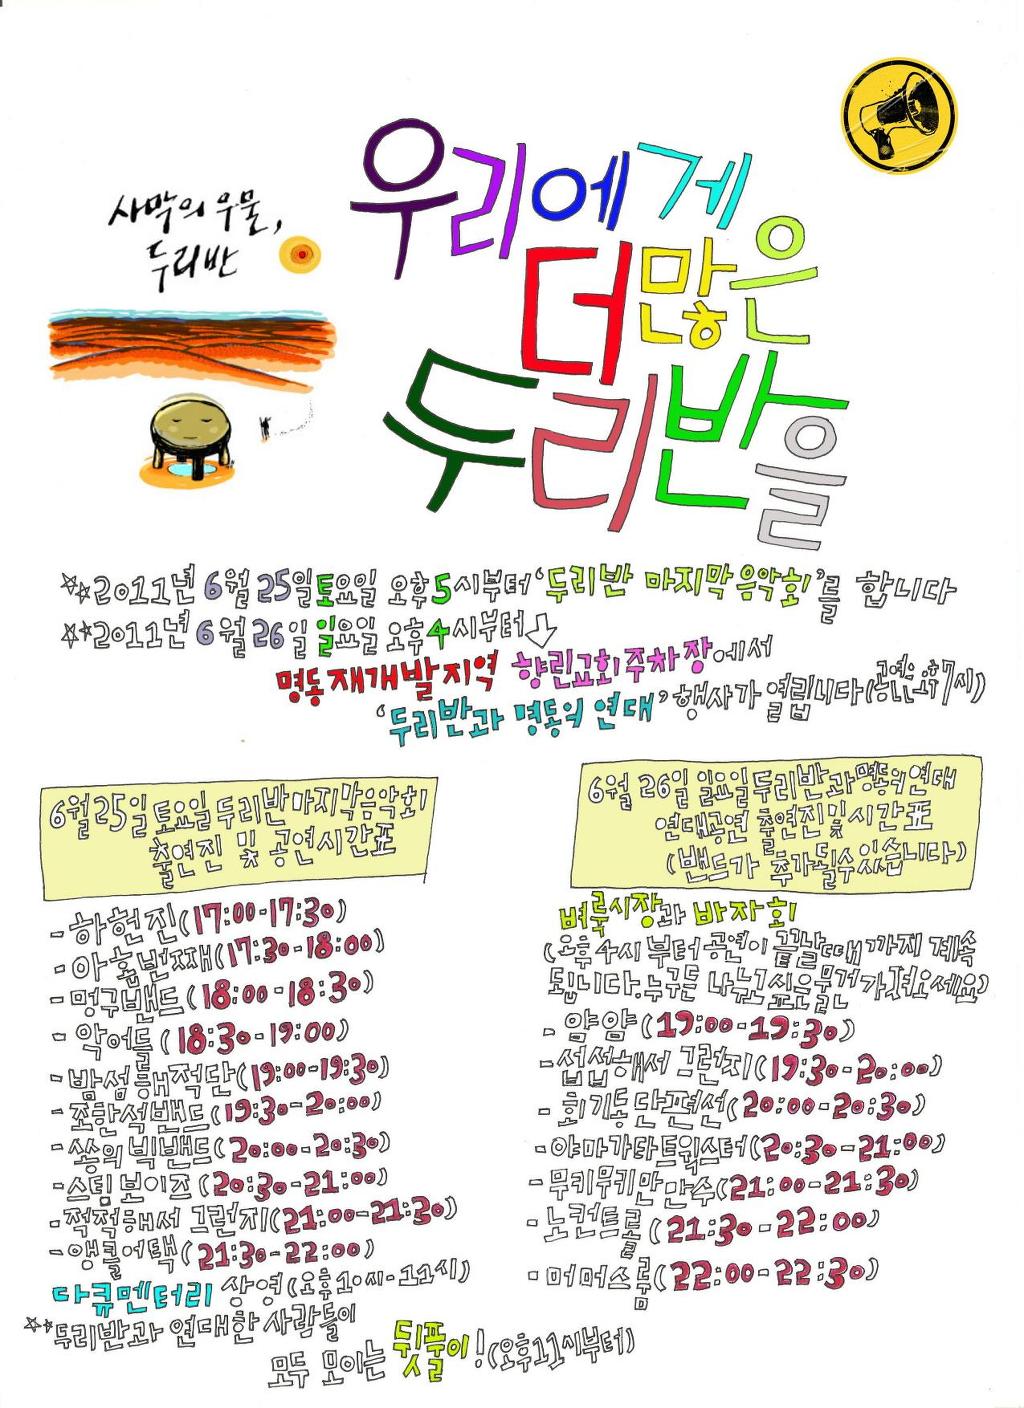 사막의 우물,
두리반
우리에게
더 많은
두리반을
☆☆2011년 6월 25일 토요일 오후 5시부터 '두리반 마지막 음악회'를 합니다
☆☆2011년 6월 26일 일요일 오후 4시부터
명동 재개발 지역 향린교회 주차장에서
'두리반과 명동의 연대' 행사가 열립니다(공연은 오후 7시)
6월 25일 토요일 두리반 마지막 음악회
출연진 및 공연시간표
- 하헌진(17:00-17:30)
- 아홉번째(17:30-18:00)
- 멍구밴드(18:00-18:30)
- 악어들(18:30-19:00)
- 밤섬해적단(19:00-19:30)
- 조한석밴드(19:30-20:00)
- 쏭의 빅밴드(20:00-20:30)
- 스팀보이즈(20:30-21:00)
- 적적해서 그런지(21:00-21:30)
- 앵클어택(21:30-22:00)
다큐멘터리 상영(오후10시-11시)
☆☆두리반과 연대한 사람들이
모두 모이는 뒷풀이!(오후11시부터)
6월 26일 일요일 두리반과 명동의 연대
연대공연 출연진 및 시간표
(밴드가 추가될 수 있습니다)
벼룩시장과 바자회
(오후 4시 부터 공연이 끝날때 까지 계속
됩니다. 누구든 나누고 싶은 물건 가져오세요)
- 얌얌(19:00-19:30)
- 섭섭해서 그런지(19:30-20:00)
- 회기동 단편선(20:00-20:30)
- 야마가타 트윅스터(20:30-21:00)
- 무키무키만만수(21:00-21:30)
- 노컨트롤(21:30-22:00)
- 머머스룸(22:00-22:30)